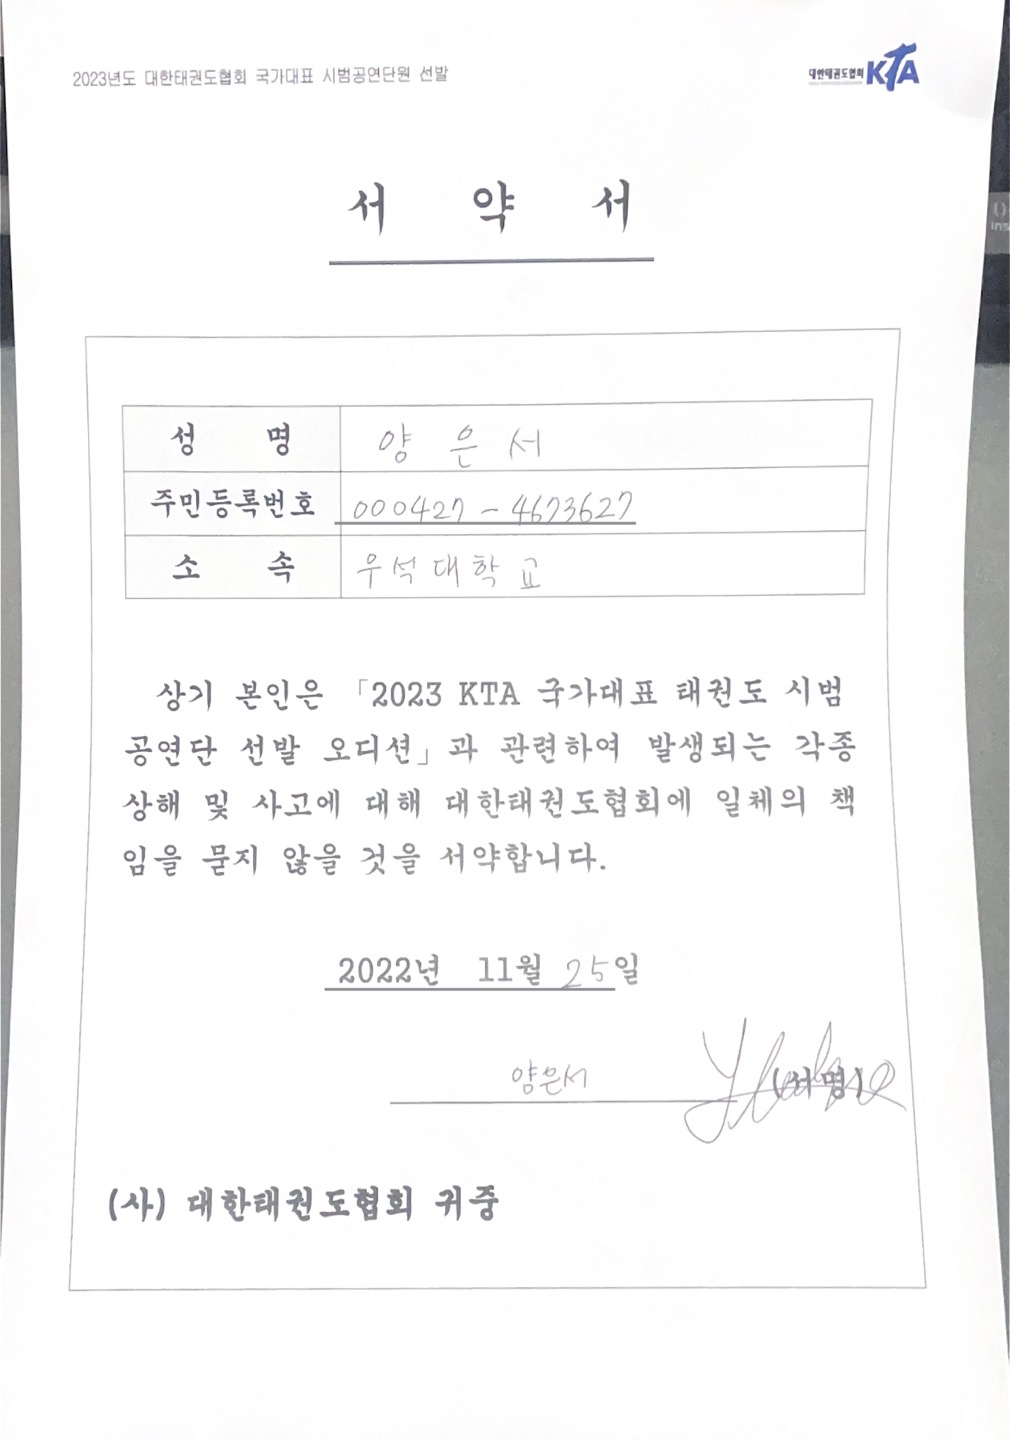 2023년도 대한태권도협회 국가대표 시범공연단원 선발
대한태권도협회 KTA
서 약 서
성 명 양 은 서
주민등록번호 000427-4673627
소 속 우석대학교
상기 본인은 「2023 KTA 국가대표 태권도 시범
공연단 선발 오디션」과 관련하여 발생되는 각종
상해 및 사고에 대해 대한태권도협회에 일체의 책
임을 묻지 않을 것을 서약합니다.
2022년 11월 25일
양은서 (서명)
(사) 대한태권도협회 귀중